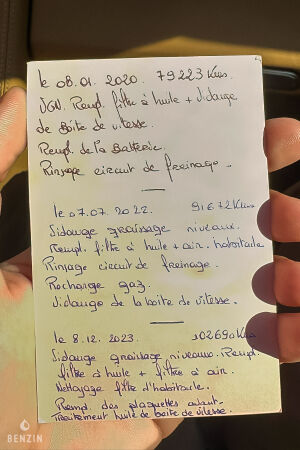 le 08.01.2020. 79223 Kms
VGN. Rempl. filtre à huile + vidange
de Boite de vitesse.
Rempl. de la Batterie.
Rinçage circuit de freinage.
le 07.07.2022. 91672 Kms
Vidange graissage niveaux.
Rempl. filtre à huile + air. habitacle
Rinçage circuit de freinage.
Recharge gaz.
Vidange de la boite de vitesse.
le 8.12.2023. 102690 Kms
Vidange graissage niveaux. Rempl.
filtre à huile + filtre à air.
Nettoyage filtre d'habitacle.
Rempl. des plaquettes avant.
Traitement huile de boite de vitesse.
BENZIN